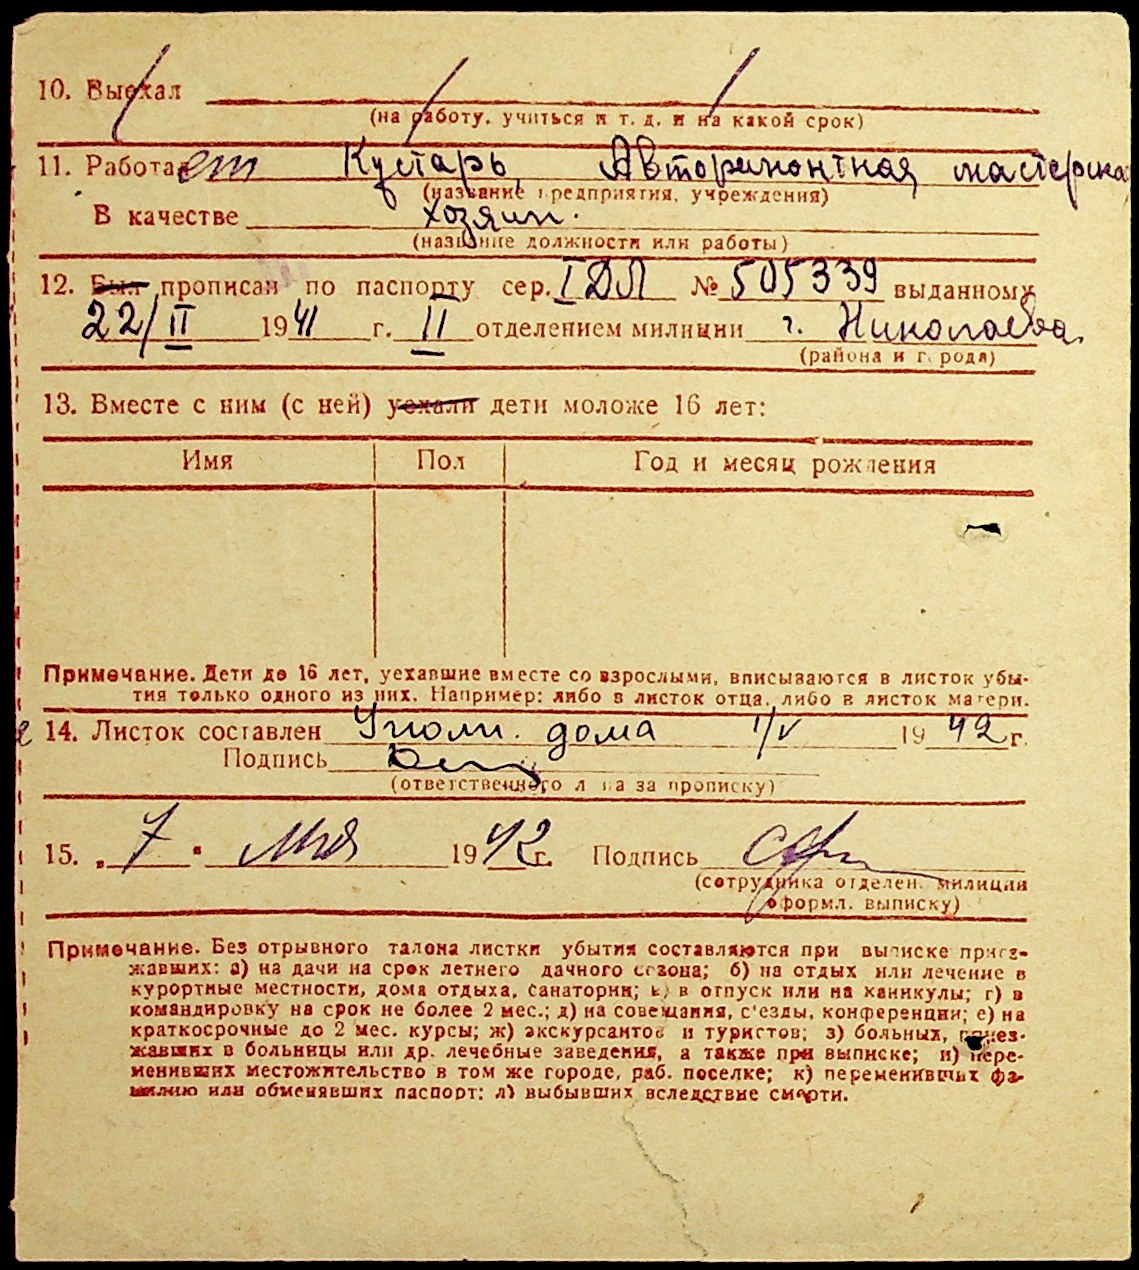 10. Выехал
(на работу, учиться и т. д. и на какой срок)
11. Работает Кустарь, Авторемонтная мастерская
(название предприятия, учреждения)
В качестве хозяин.
(название должности или работы)
12. Был прописан по паспорту сер. I ДЛ № 505339 выданному
22/II 1941 г. II отделением милиции г. Николаева.
(района и города)
13. Вместе с ним (с ней) уехали дети моложе 16 лет:
Имя Пол Год и месяц рождения
Примечание. Дети до 16 лет, уехавшие вместе со взрослыми, вписываются в листок убы-
тия только одного из них. Например: либо в листок отца, либо в листок матери.
14. Листок составлен Уполн. дома 1/V 1942 г.
Подпись
(ответственного лица за прописку)
15. „7" мая 1942 г. Подпись
(сотрудника отделен. милиции
оформл. выписку)
Примечание. Без отрывного талона листки убытия составляются при выписке приез-
жавших: а) на дачи на срок летнего дачного сезона; б) на отдых или лечение в
курортные местности, дома отдыха, санатории; в) в отпуск или на каникулы; г) в
командировку на срок не более 2 мес.; д) на совещания, с'езды, конференции; е) на
краткосрочные до 2 мес. курсы; ж) экскурсантов и туристов; з) больных, приез-
жавших в больницы или др. лечебные заведения, а также при выписке; и) пере-
менивших местожительство в том же городе, раб. поселке; к) переменивших фа-
милию или обменявших паспорт; л) выбывших вследствие смерти.